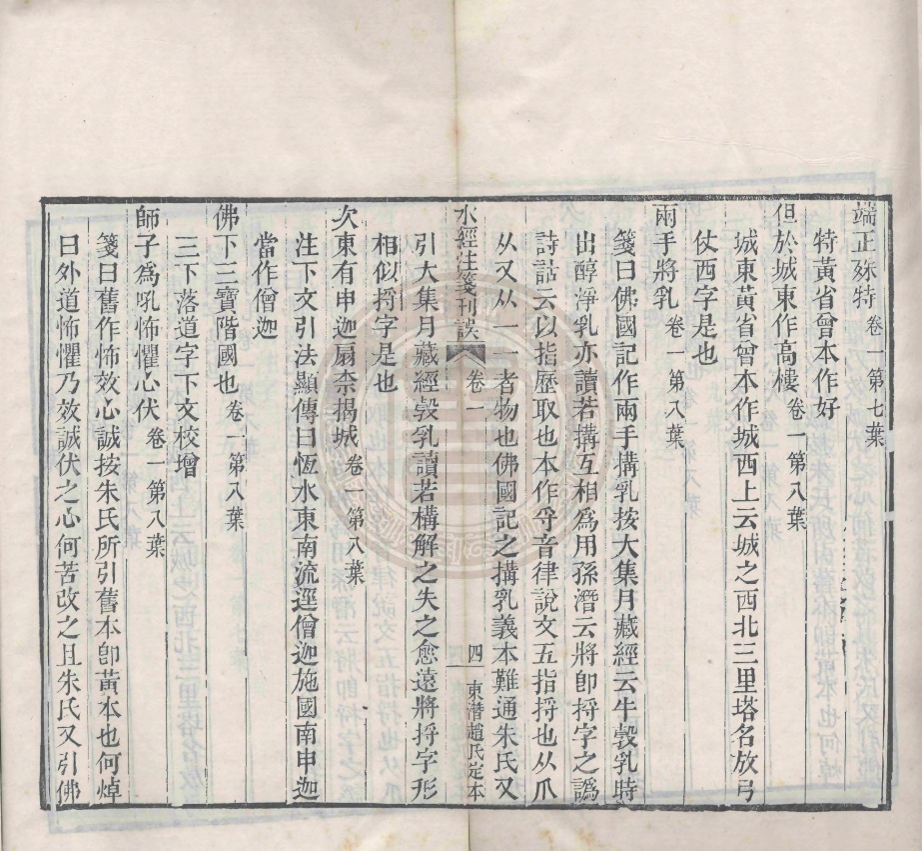 端正姝特卷一第七葉
特黃省曾本作好
但於城東作高樓卷一第八葉
城東黃省曾本作城西上云城之西北三里塔名放弓
仗西字是也
兩手將乳卷一第八葉
箋曰佛國記作兩手搆乳按大集月藏經云牛㝅乳時
出醇淨乳亦讀若搆互相爲用孫潛云將卽捋字之譌
詩詁云以指歷取也本作寽音律說文五指捋也从爪
从又从一一者物也佛國記之搆乳義本難通朱氏又
水經注箋刊誤 卷一 四 東潛趙氏定本
引大集月藏經㝅乳讀若構解之失之愈遠將捋字形
相似捋字是也
次東有申迦扇柰揭城卷一第八葉
注下文引法顯傳曰恆水東南流逕僧迦施國南申迦
當作僧迦
佛下三寶階國也卷一第八葉
三下落道字下文校增
師子爲吼怖懼心伏卷一第八葉
箋曰舊作怖效心誠按朱氏所引舊本卽黃本也何焯
曰外道怖懼乃效誠伏之心何苦改之且朱氏又引佛